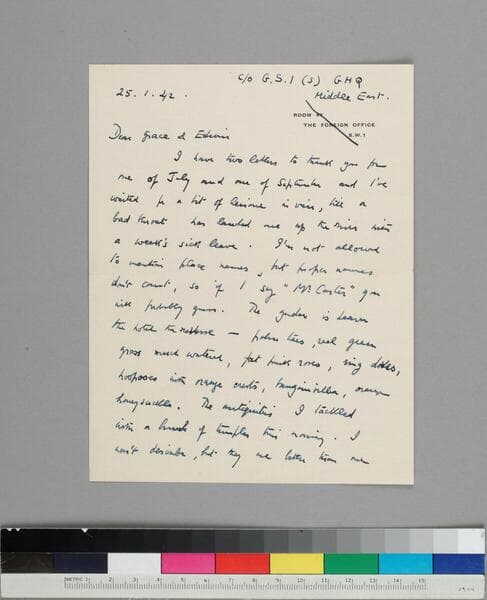 c/o G.S.I (S) GHQ
Middle East.
25.1.42.
ROOM
THE FOREIGN OFFICE
S.W.1
Dear Grace & Edwin
I have two letters to thank you for
one of July and one of September and I've
waited for a bit of leisure in vain, till a
bad throat has landed me up the river with
a week's sick leave. I'm not allowed
to mention place names, but proper names
don't count, so if I say "Mr. Carter" you
will probably guess. The garden is heaven
the hotel the — palm trees, real green
grass much watered, fat pink roses, ring doves,
hoopoes with orange crests, bougainvillea, orange
honeysuckle. The antiquities I tackled
with a bunch of temples this morning. I
won't describe, but they are better than one
METRIC 1 2 3 4 5 6 7 8 9 10 11 12 13 14 15